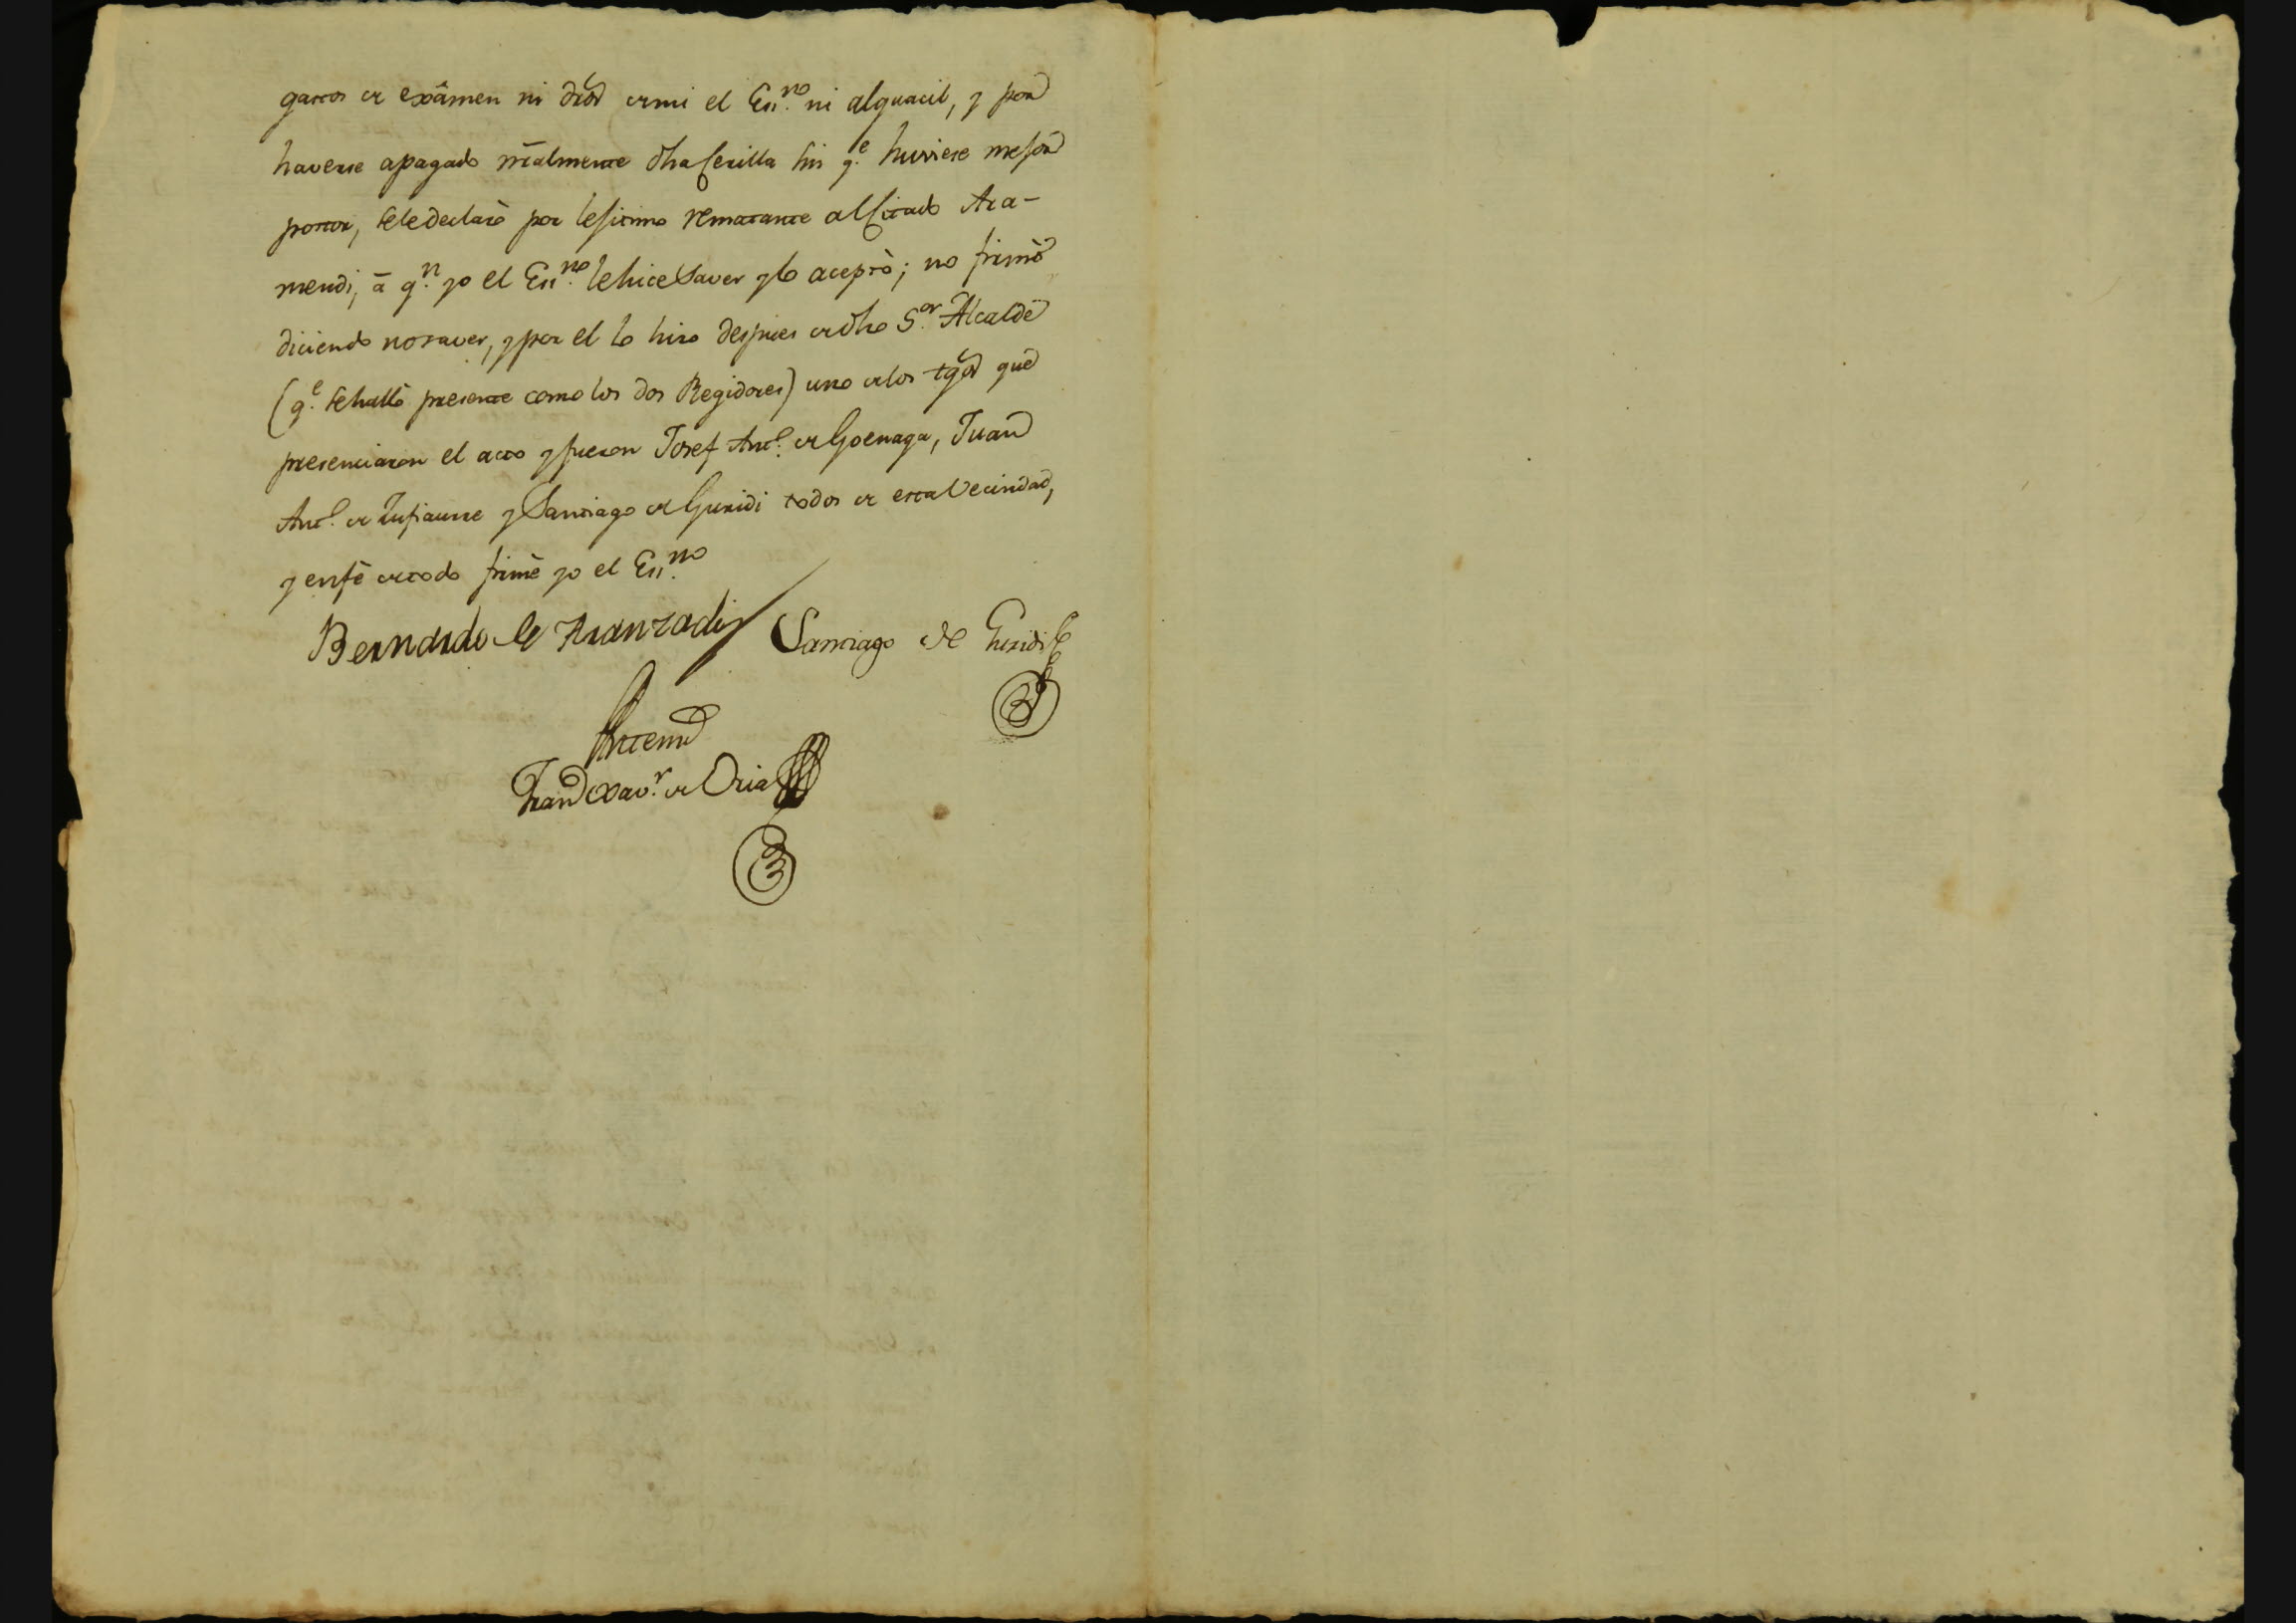 gastos de exâmen ni drõs de mi el Ess.no ni alguacil, y por
haverse apagado nr̃almente dha Serilla sin q.e huviese mejor
postor, se le declarò por lejitimo rematante al Citado Ara-
mendi, â q.n yo el Ess.no le hice Saver y lo aceptò; no firmò
diciendo no saver, y por el lo hizo despues de dho S.or Alcalde
(q.e se hallò presente como los dos Regidores) uno de los tgõs que
presenciaron el acto y fueron Josef Ant.o de Goenaga, Juan
Ant.o de Zufiaurre y Santiago de Guridi todos de esta Vecindad,
y en fè de todo firmè yo el Ess.no
Bernardo de Aranzadi Santiago de Guridi
Ante mi
Fran.co Xav.r de Oria